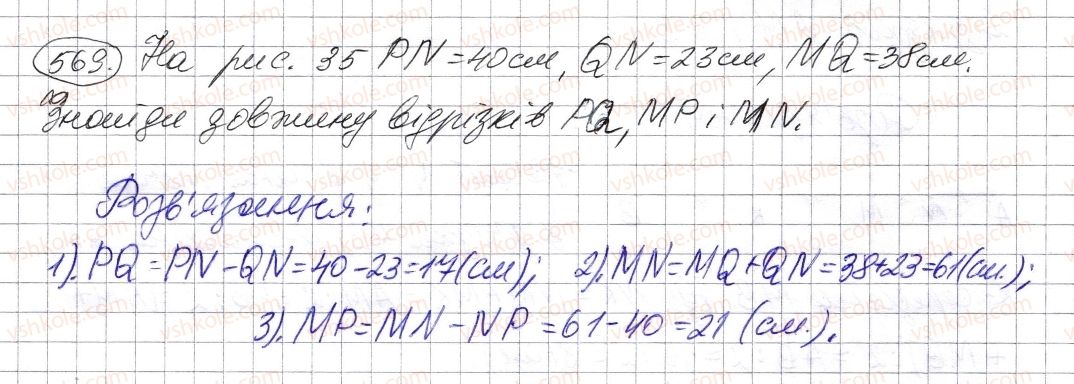 569. На рис. 35 PN=40см, QN=23см, MQ=38см.
Знайди довжину відрізків PQ, MP і MN.
Розв'язання:
1). PQ=PN-QN=40-23=17(см); 2). MN=MQ+QN=38+23=61(см.);
3). MP=MN-NP=61-40=21 (см.).